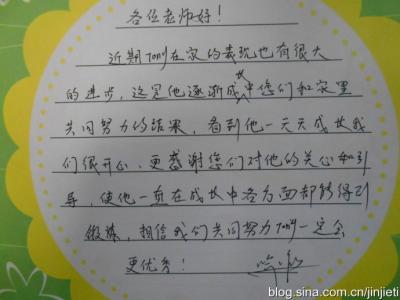 各位老师好！
近期Tony在家的表现也有很大
的进步，这是他逐渐成长中您们和家里
共同努力的结果，看到他一天天成长我
们很开心，更感谢您们对他的关心和引
导，使他一直在成长中各方面都能得到
锻炼，相信我们共同努力Tony一定会
更优秀！
blog.sina.com.cn/jinjieti